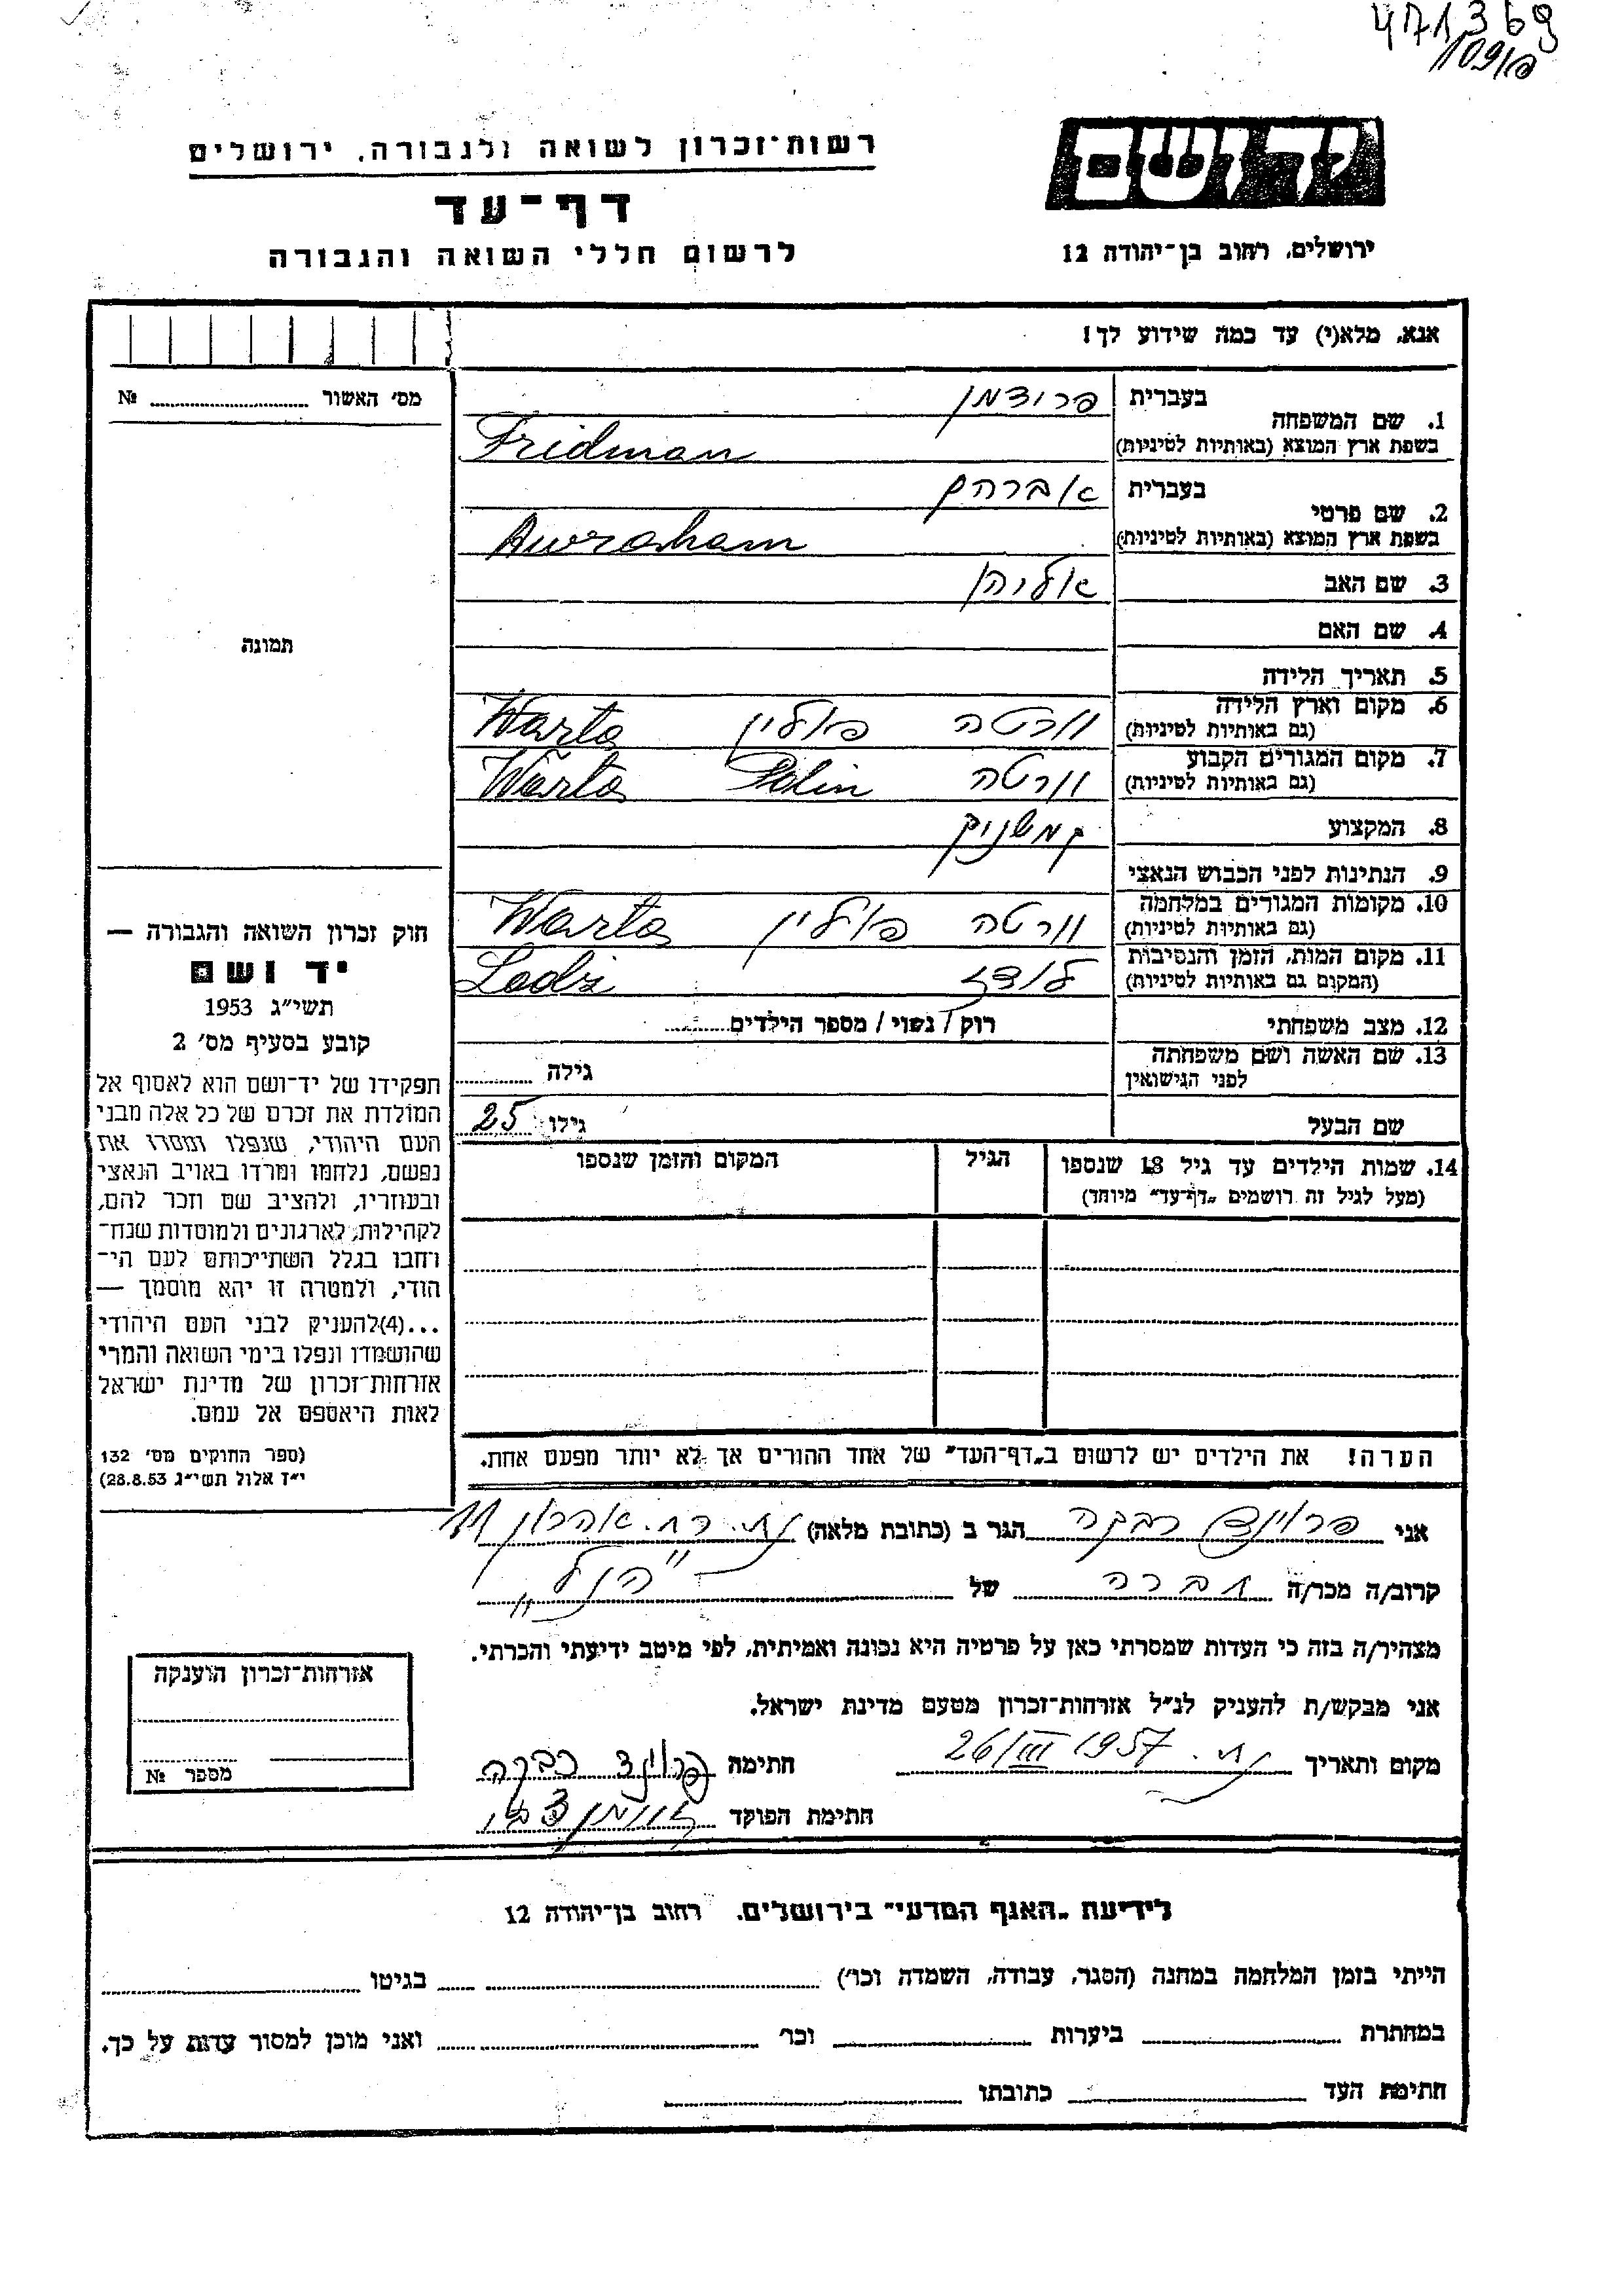 471369
109/פ
יד ושם
ירושלים, רחוב בן־יהודה 12
רשות־זכרון לשואה ולגבורה, ירושלים
דף־עד
לרשום חללי השואה והגבורה
אנא, מלא(י) עד כמה שידוע לך!
מס׳ האשור № ........
1. שם המשפחה
בעברית פרידמן
בשפת ארץ המוצא (באותיות לטיניות) Fridman
2. שם פרטי
בעברית אברהם
בשפת ארץ המוצא (באותיות לטיניות) Awraham
3. שם האב אליהו
4. שם האם
5. תאריך הלידה
6. מקום וארץ הלידה
(גם באותיות לטיניות) וורטה פולין Warta
7. מקום המגורים הקבוע
(גם באותיות לטיניות) וורטה Polin Warta
8. המקצוע קמשניק
9. הנתינות לפני הכבוש הנאצי
10. מקומות המגורים במלחמה
(גם באותיות לטיניות) וורטה פולין Warta
11. מקום המות, הזמן והנסיבות
(המקום גם באותיות לטיניות) לודז Lodz
12. מצב משפחתי רוק / נשוי / מספר הילדים........
13. שם האשה ושם משפחתה
לפני הנישואין גילה ........
שם הבעל גילו: 25
14. שמות הילדים עד גיל 18 שנספו
(מעל לגיל זה רושמים „דף־עד״ מיוחד)
הגיל
המקום והזמן שנספו
תמונה
חוק זכרון השואה והגבורה —
יד ושם
תשי״ג 1953
קובע בסעיף מס׳ 2
תפקידו של יד־ושם הוא לאסוף אל
המולדת את זכרם של כל אלה מבני
העם היהודי, שנפלו ומסרו את
נפשם, נלחמו ומרדו באויב הנאצי
ובעוזריו, ולהציב שם וזכר להם,
לקהילות, לארגונים ולמוסדות שנח־
רחבו בגלל השתייכותם לעם הי־
הודי, ולמטרה זו יהא מוסמך —
...(4)להעניק לבני העם היהודי
שהושמדו ונפלו בימי השואה והמרי
אזרחות־זכרון של מדינת ישראל
לאות היאספם אל עמם.
(ספר החוקים מס׳ 132
י״ז אלול תשי״ג 28.8.53)
הערה! את הילדים יש לרשום ב„דף־העד״ של אחד ההורים אך לא יותר מפעם אחת.
אני פרוינד רבקה הגר ב (כתובת מלאה) נת. רח. אהרון 11
קרוב/ה מכר/ה חברה של הנ״ל
מצהיר/ה בזה כי העדות שמסרתי כאן על פרטיה היא נכונה ואמיתית, לפי מיטב ידיעתי והכרתי.
אני מבקש/ת להעניק לנ״ל אזרחות־זכרון מטעם מדינת ישראל.
מקום ותאריך נת. 26/III 1957 חתימה פרוינד רבקה
חתימת הפוקד
אזרחות־זכרון הוענקה
מספר №
לידיעת „האגף המדעי״ בירושלים, רחוב בן־יהודה 12
הייתי בזמן המלחמה במחנה (הסגר, עבודה, השמדה וכו׳) ........ בגיטו ........
במחתרת ........ ביערות ........ וכו׳ ........ ואני מוכן למסור עדות על כך.
חתימת העד ........ כתובתו ........